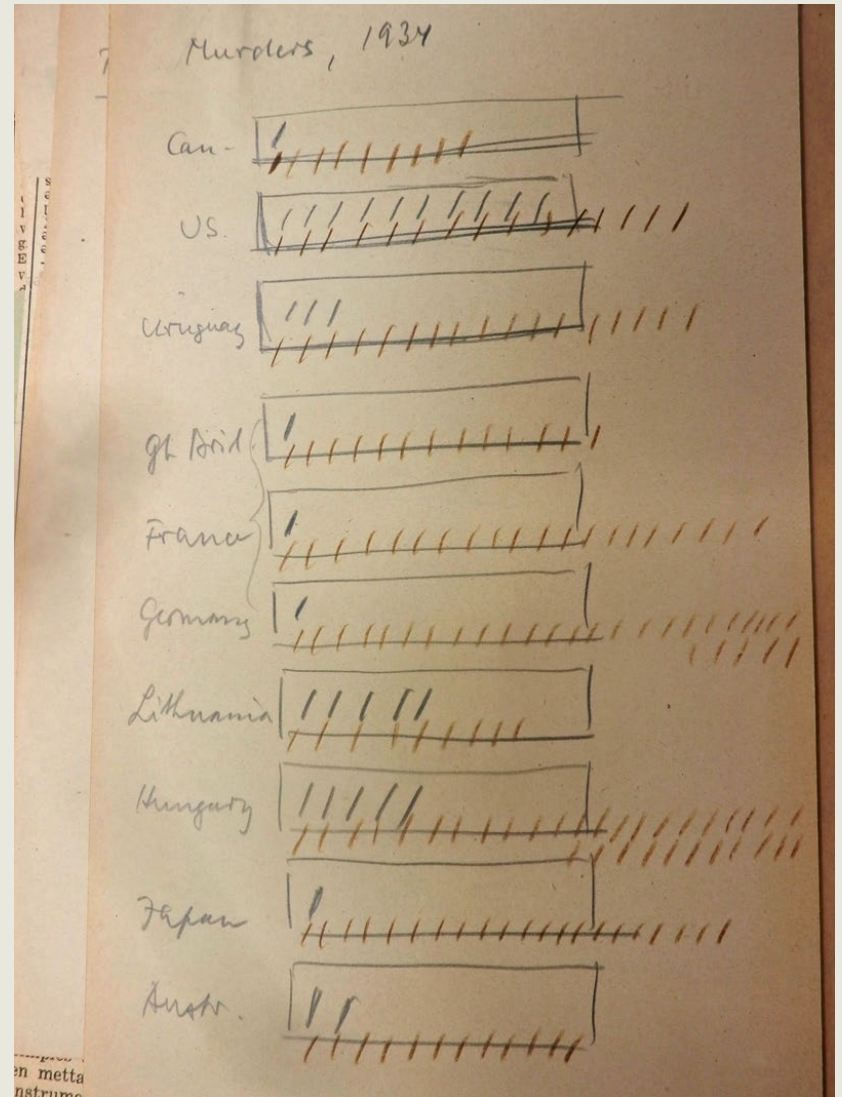 Murders, 1934
Can-
US.
Uruguay
Gt Brit
France
Germany
Lithuania
Hungary
Japan
Austr.
en metta
nstrume